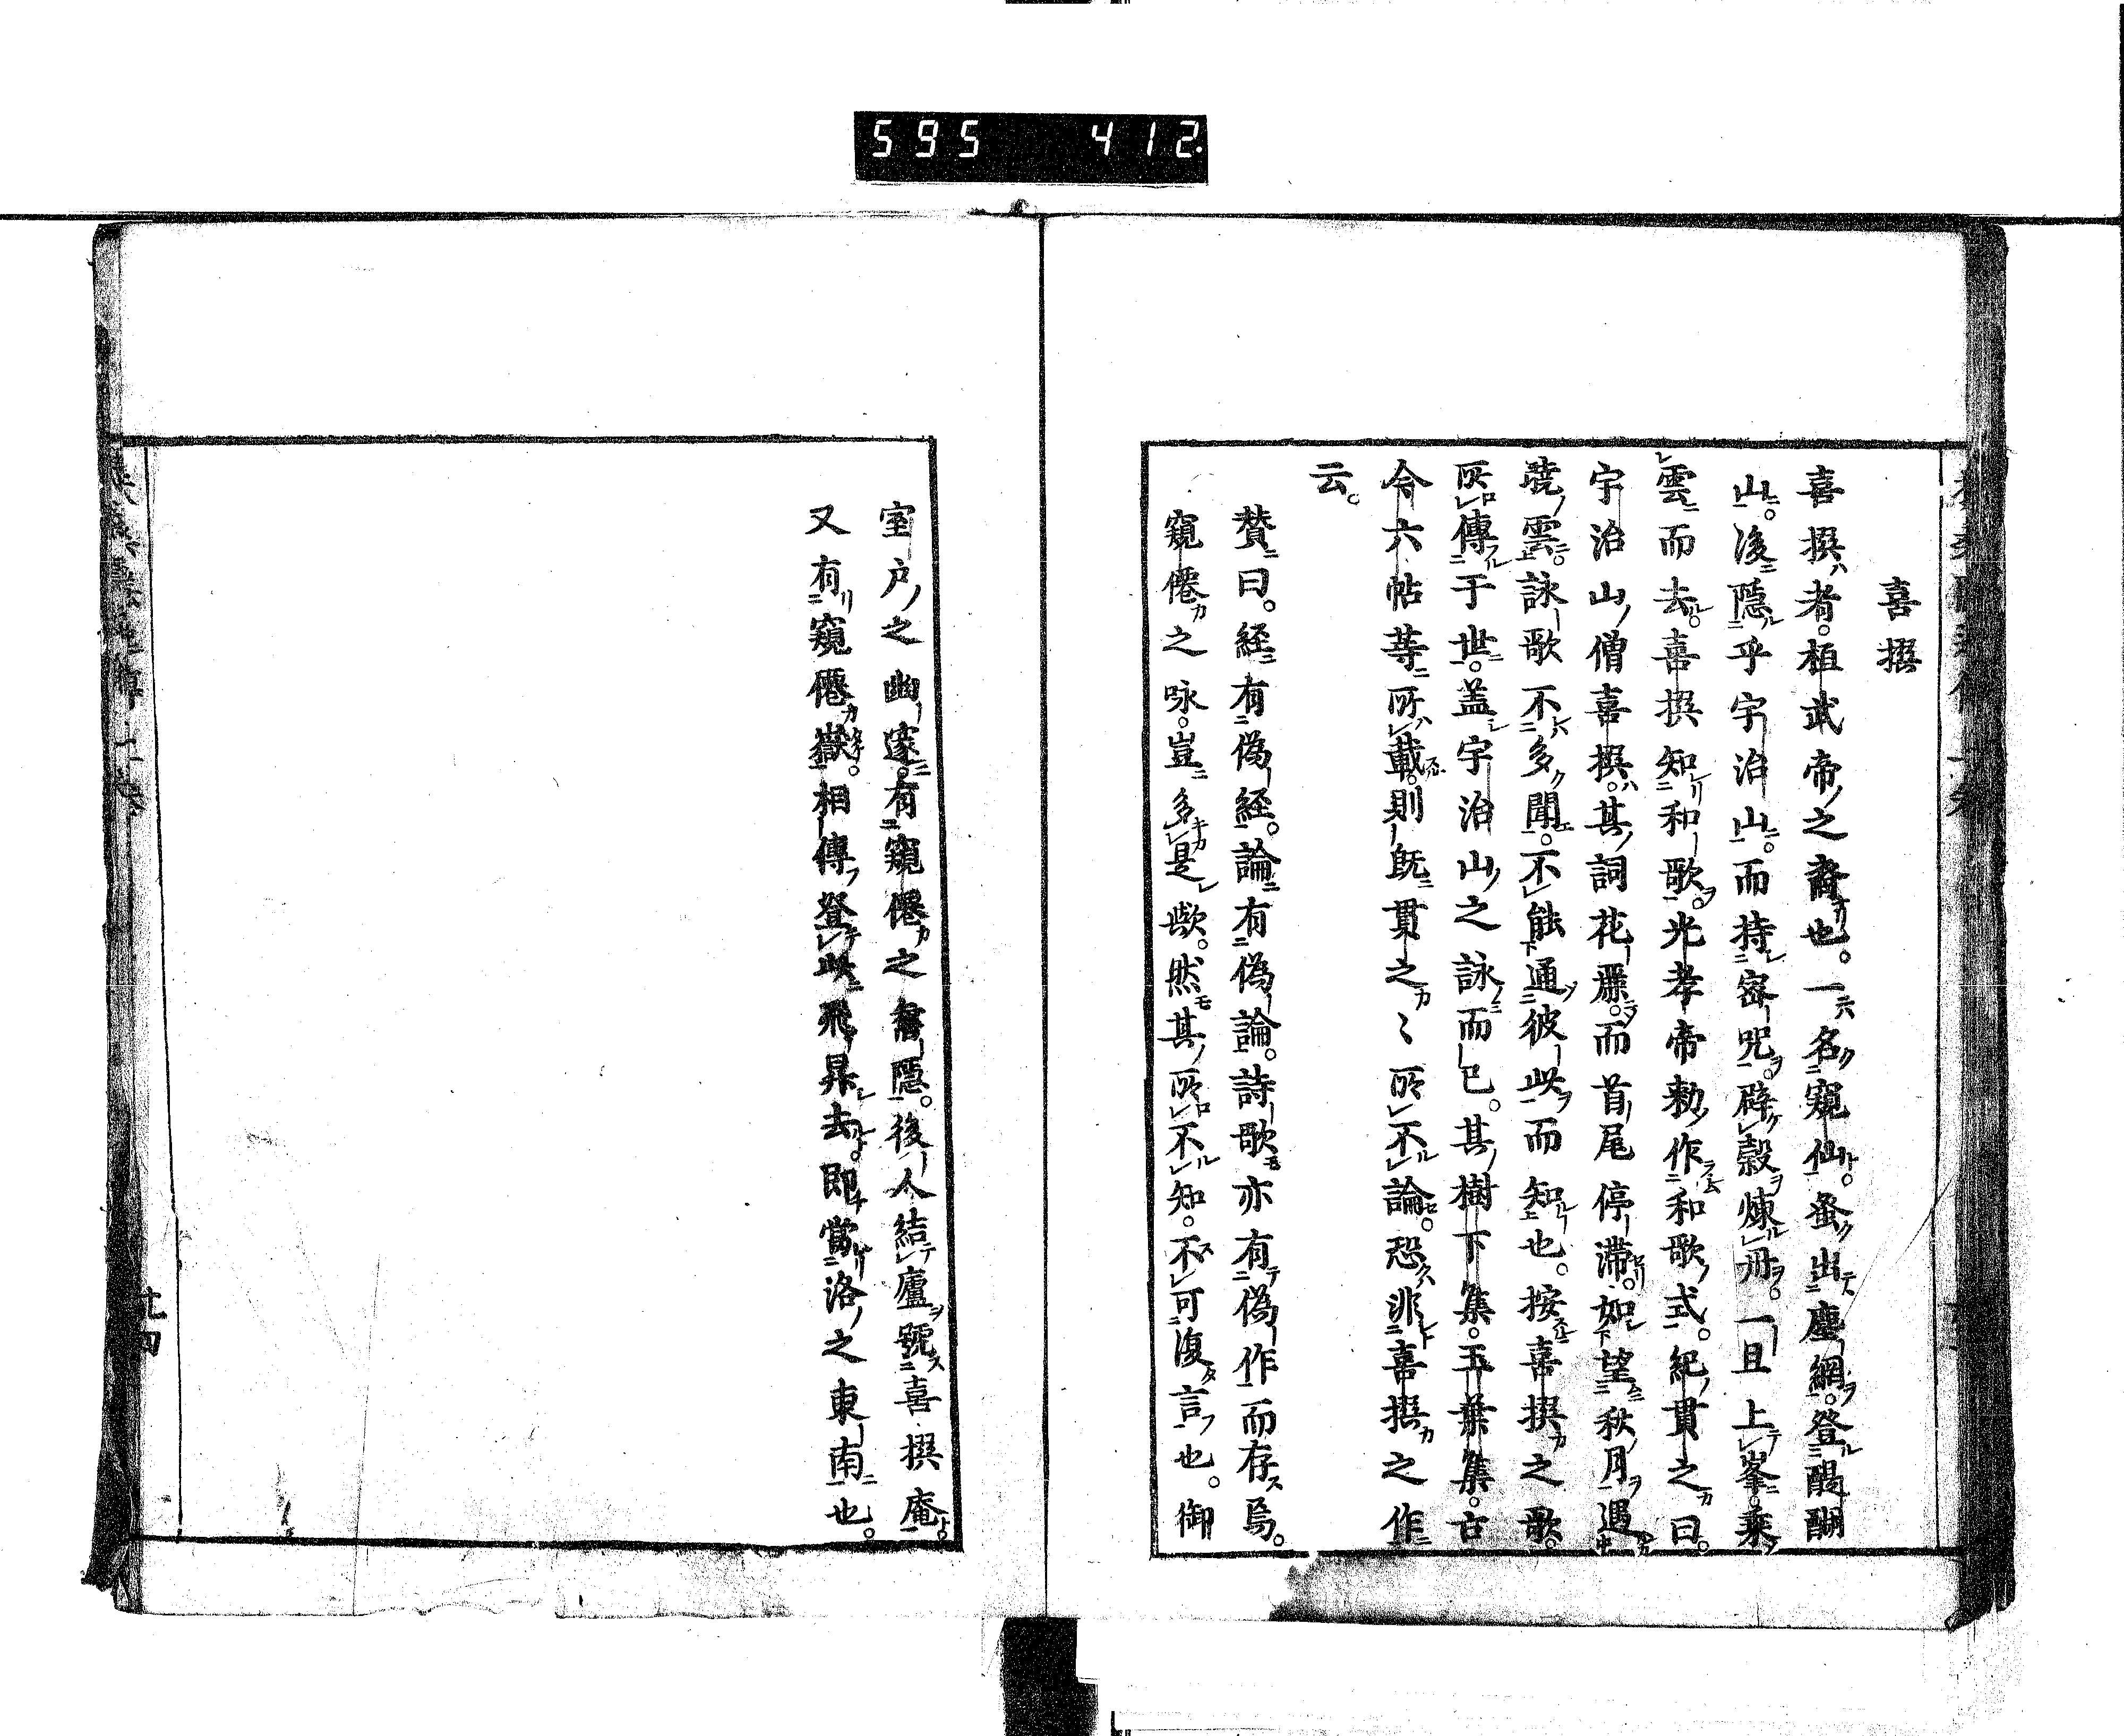 595 412.
喜撰
喜撰者。桓武帝之裔也。一名窺仙。蚤出塵網。登醍醐
山。後隱乎宇治山。而持密咒。辟穀煉丹。一旦上峯。乘
雲而去。喜撰知和歌。光孝帝勅作和歌式。紀貫之曰。
宇治山僧喜撰。其詞花麗。而首尾停滯。如望秋月遇
曉雲。詠歌不多聞。不能通彼此而知也。按喜撰之歌。
所傳于世。盖宇治山之詠而已。其樹下集。玉葉集。古
今六帖等所載。則既貫之〻所不論。恐非喜撰之作
云。
賛曰。経有偽経。論有偽論。詩歌亦有偽作而存焉。
窺僊之咏。豈多是歟。然其所不知。不可復言也。御
室戸之幽邃。有窺僊之舊隱。後人結廬號喜撰庵
又有窺僊嶽。相傳登此飛昇去。即當洛之東南也。
廿四